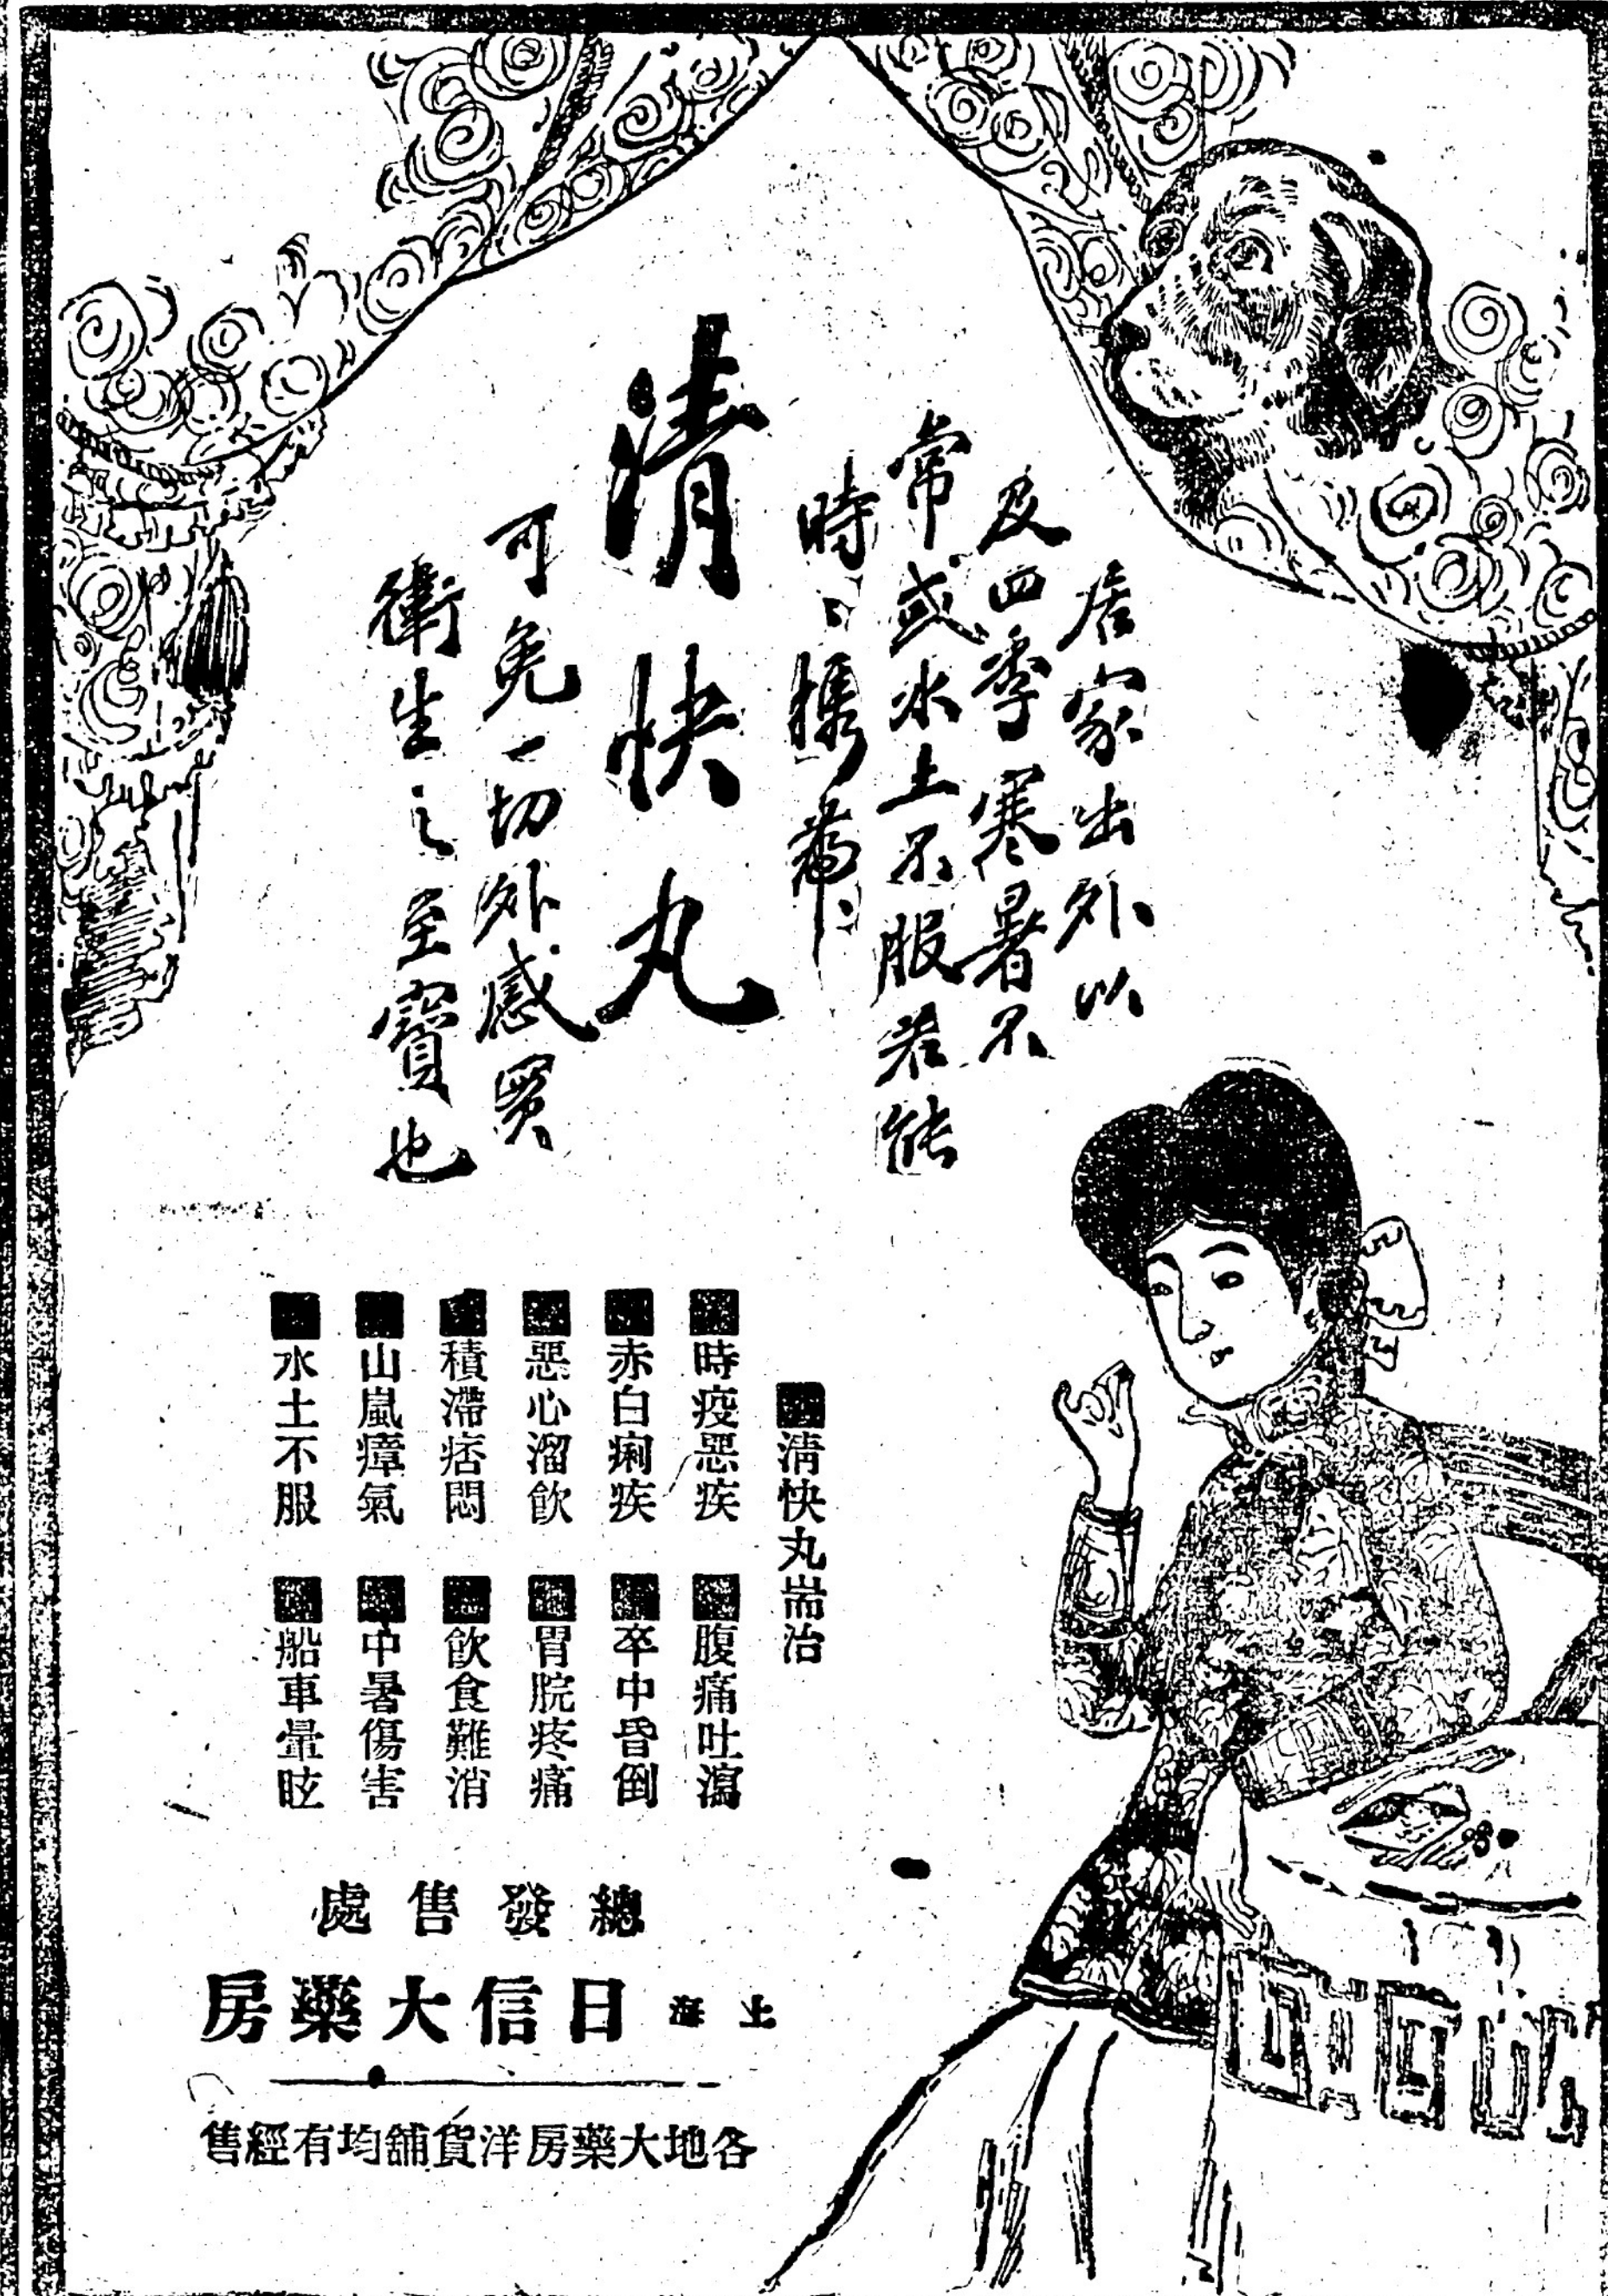 居家出外以
及四季寒暑不
常或水土不服若能
時々攜帶
清快丸
可免一切外感寔
衛生之至寶也
清快丸耑治
時疫惡疾
腹痛吐瀉
赤白痢疾
卒中昏倒
惡心溜飲
胃脘疼痛
積滯痞悶
飲食難消
山嵐瘴氣
中暑傷害
水土不服
船車暈眩
總發售處
上海 日信大藥房
各地大藥房洋貨舖均有經售